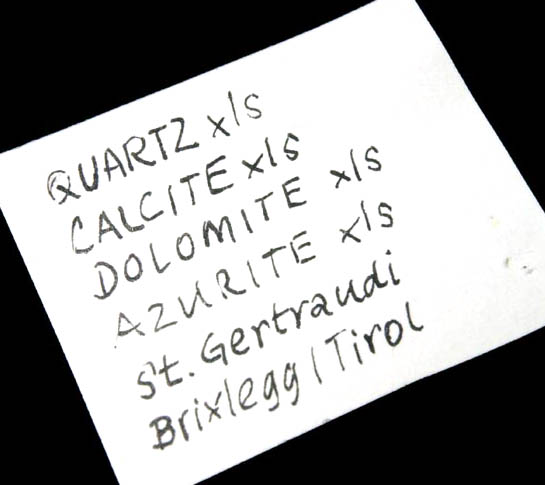 QUARTZ xls
CALCITE xls
DOLOMITE xls
AZURITE xls
St. Gertraudi
Brixlegg / Tirol